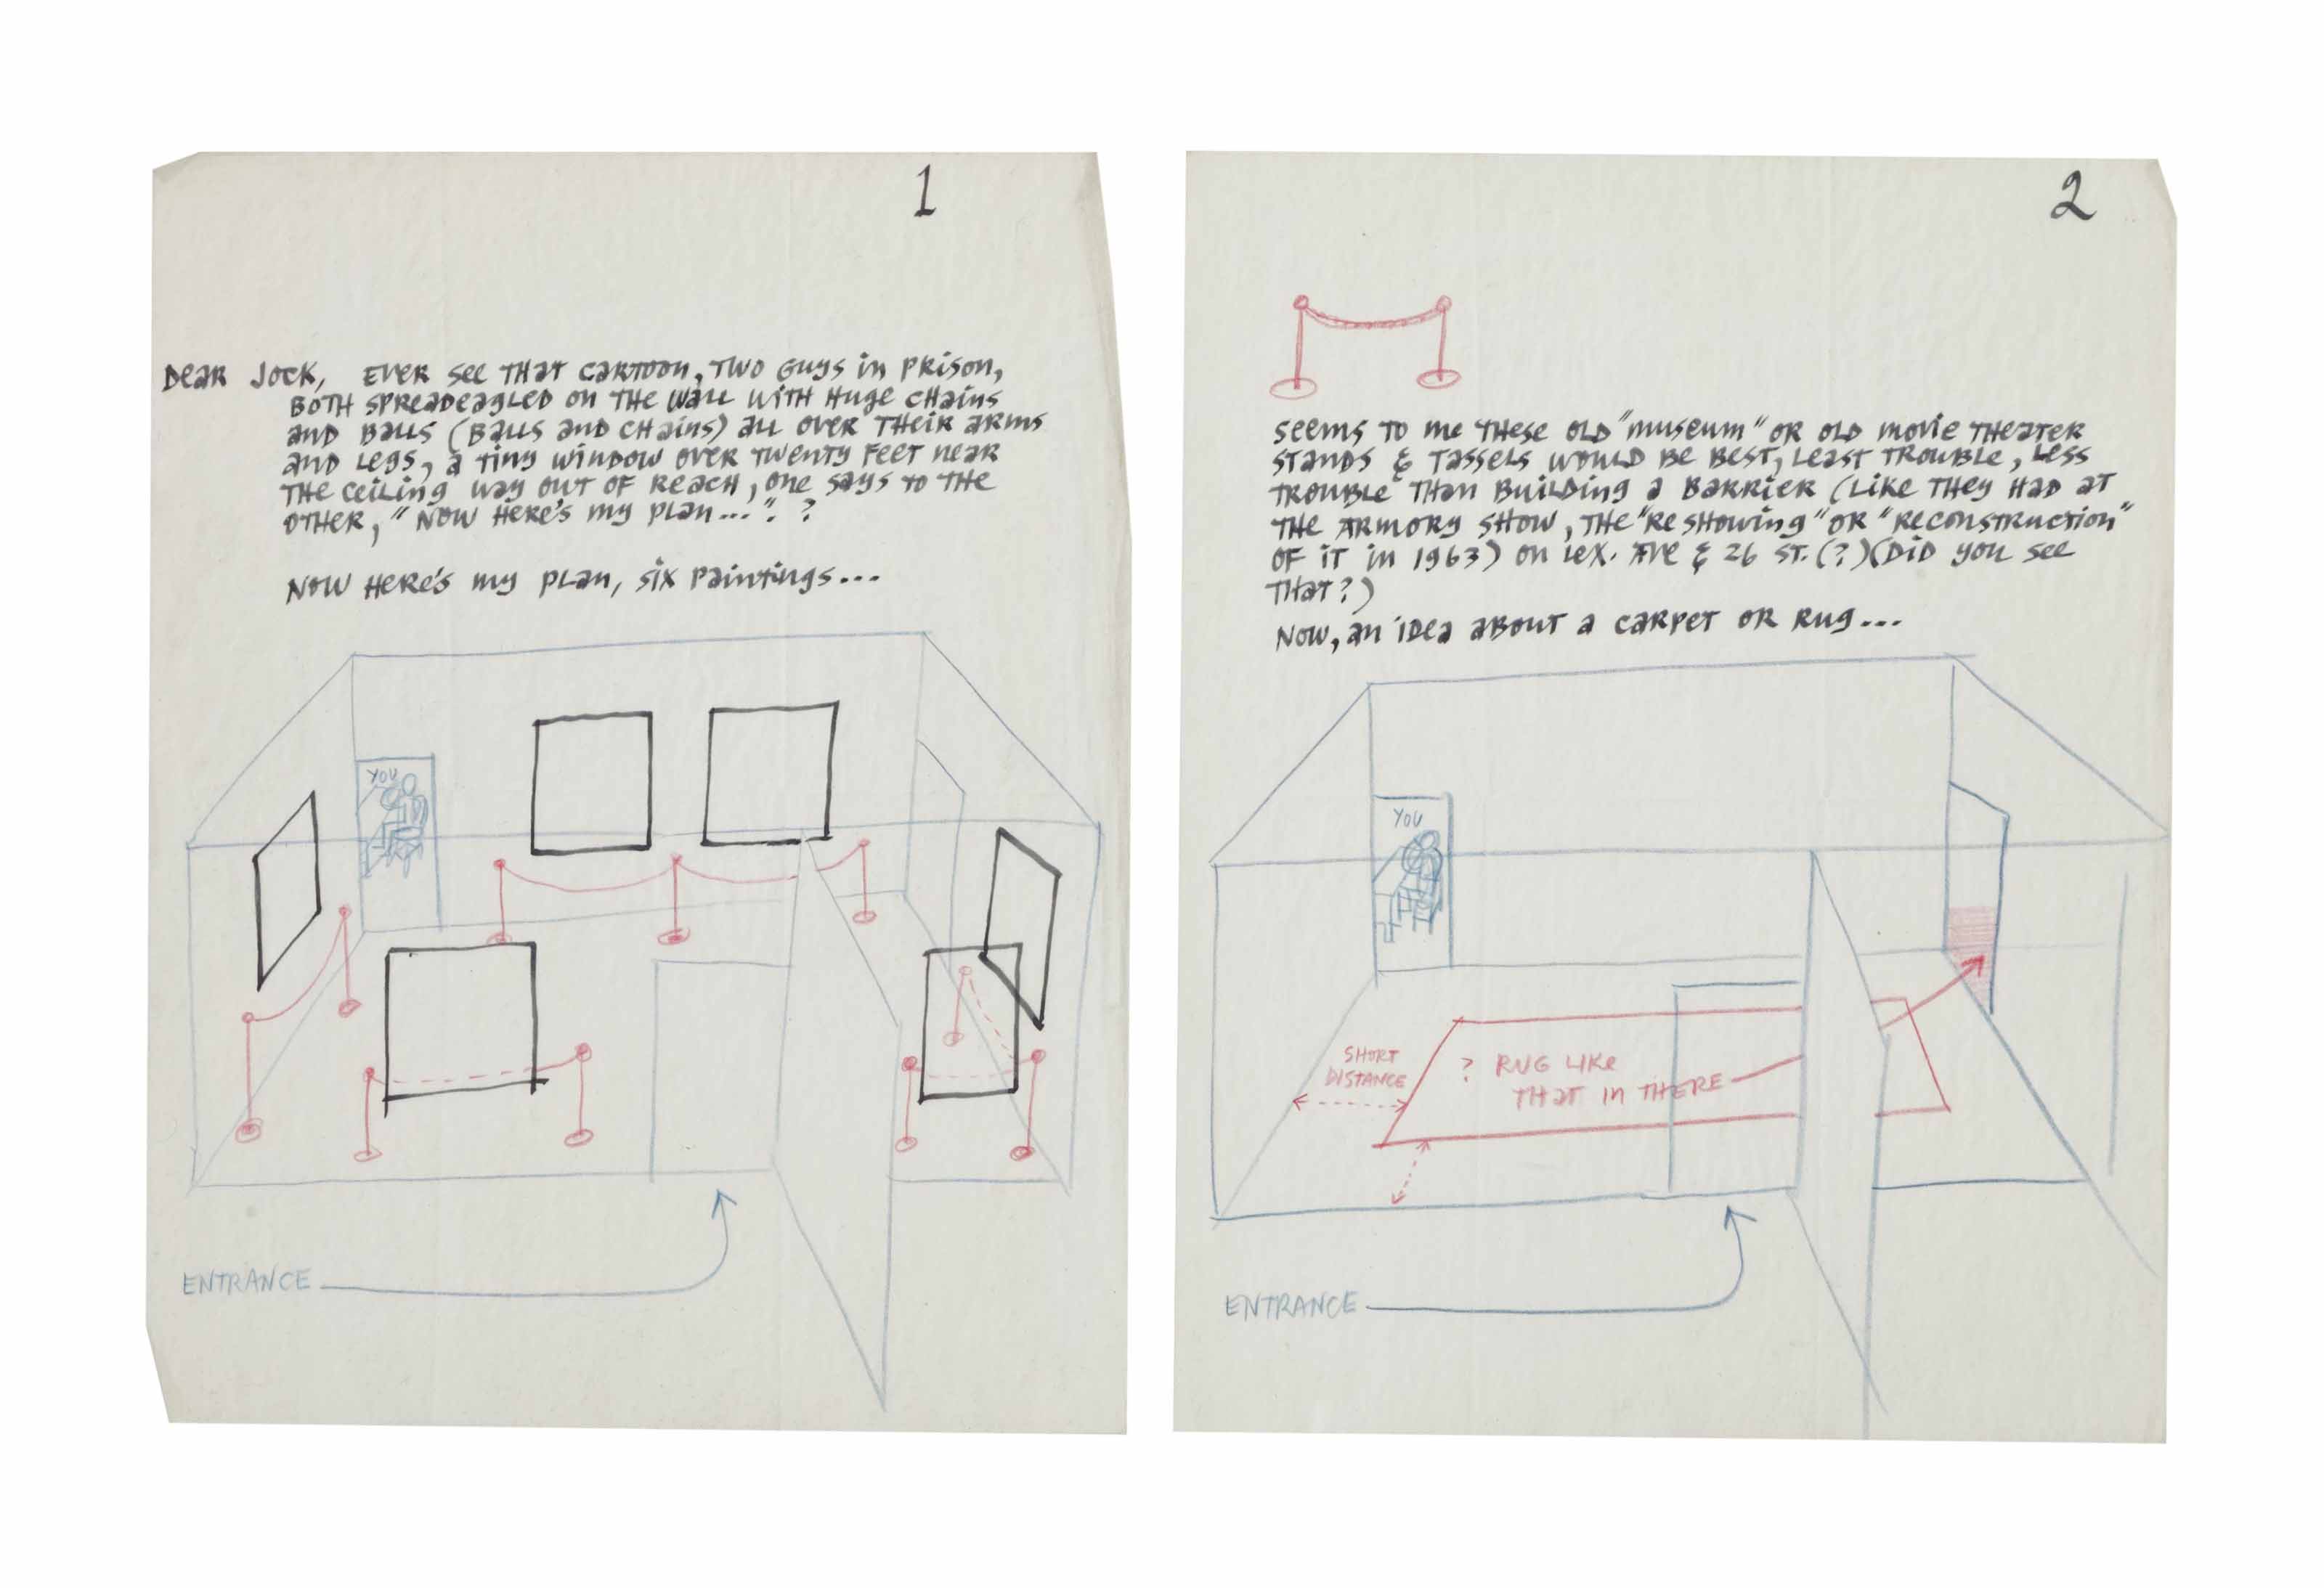 1
DEAR JOCK, EVER SEE THAT CARTOON, TWO GUYS IN PRISON,
BOTH SPREADEAGLED ON THE WALL WITH HUGE CHAINS
AND BALLS (BALLS AND CHAINS) ALL OVER THEIR ARMS
AND LEGS, A TINY WINDOW OVER TWENTY FEET NEAR
THE CEILING WAY OUT OF REACH, ONE SAYS TO THE
OTHER, "NOW HERE'S MY PLAN...". ?
NOW HERE'S MY PLAN, SIX PAINTINGS...
YOU
ENTRANCE
2
SEEMS TO ME THESE OLD "MUSEUM" OR OLD MOVIE THEATER
STANDS & TASSELS WOULD BE BEST, LEAST TROUBLE, LESS
TROUBLE THAN BUILDING A BARRIER (LIKE THEY HAD AT
THE ARMORY SHOW, THE "RESHOWING" OR "RECONSTRUCTION"
OF IT IN 1963) ON LEX. AVE & 26 ST. (?) (DID YOU SEE
THAT?)
NOW, AN IDEA ABOUT A CARPET OR RUG...
YOU
SHORT
DISTANCE
? RUG LIKE
THAT IN THERE
ENTRANCE